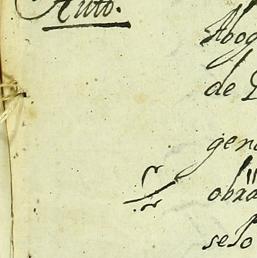 Auto.
Abog
de
gen
obra
selo